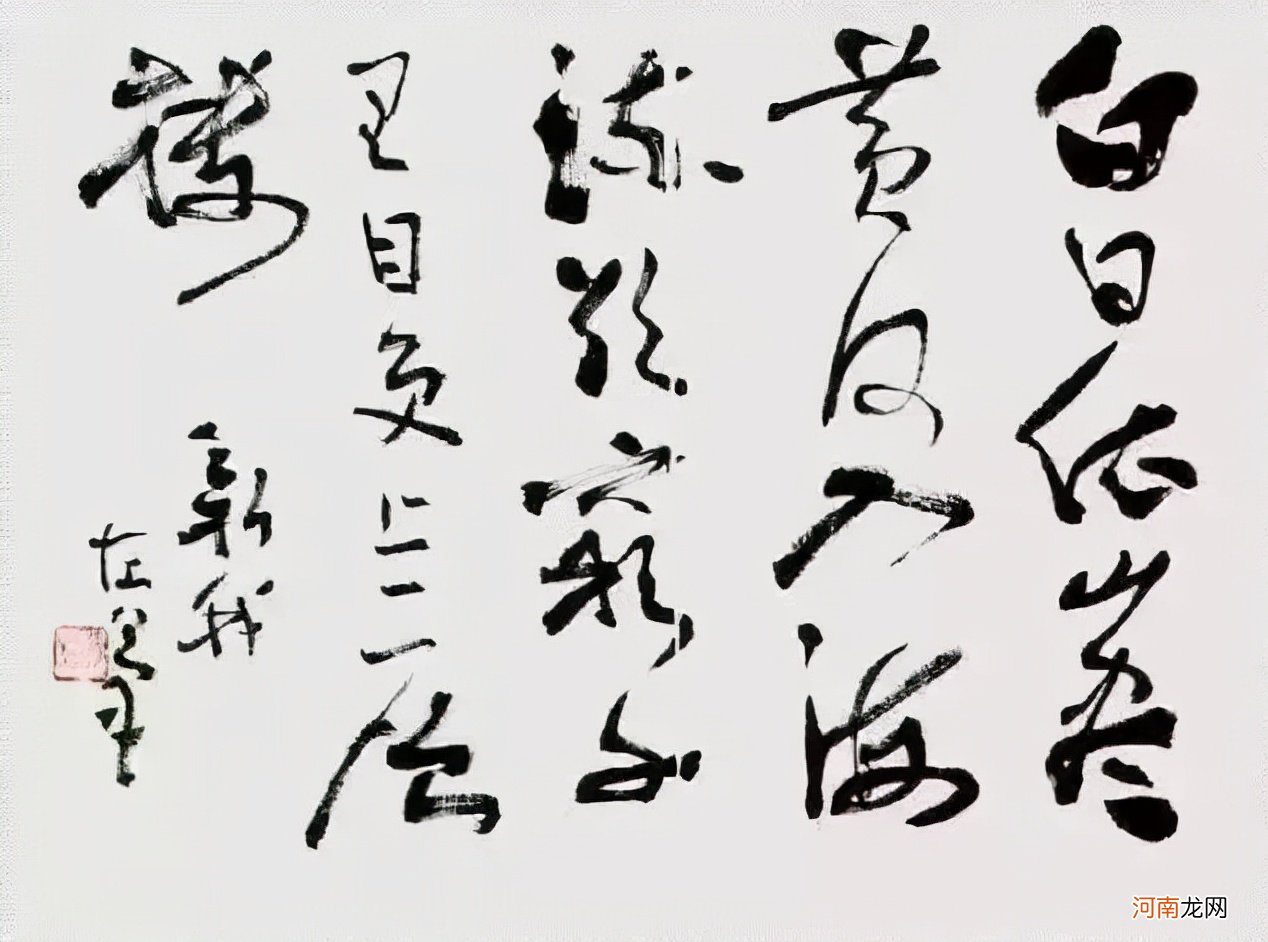 白日依山尽
黄河入海
流欲窮千
里目更上一层
楼
新我
左筆
河南龙网